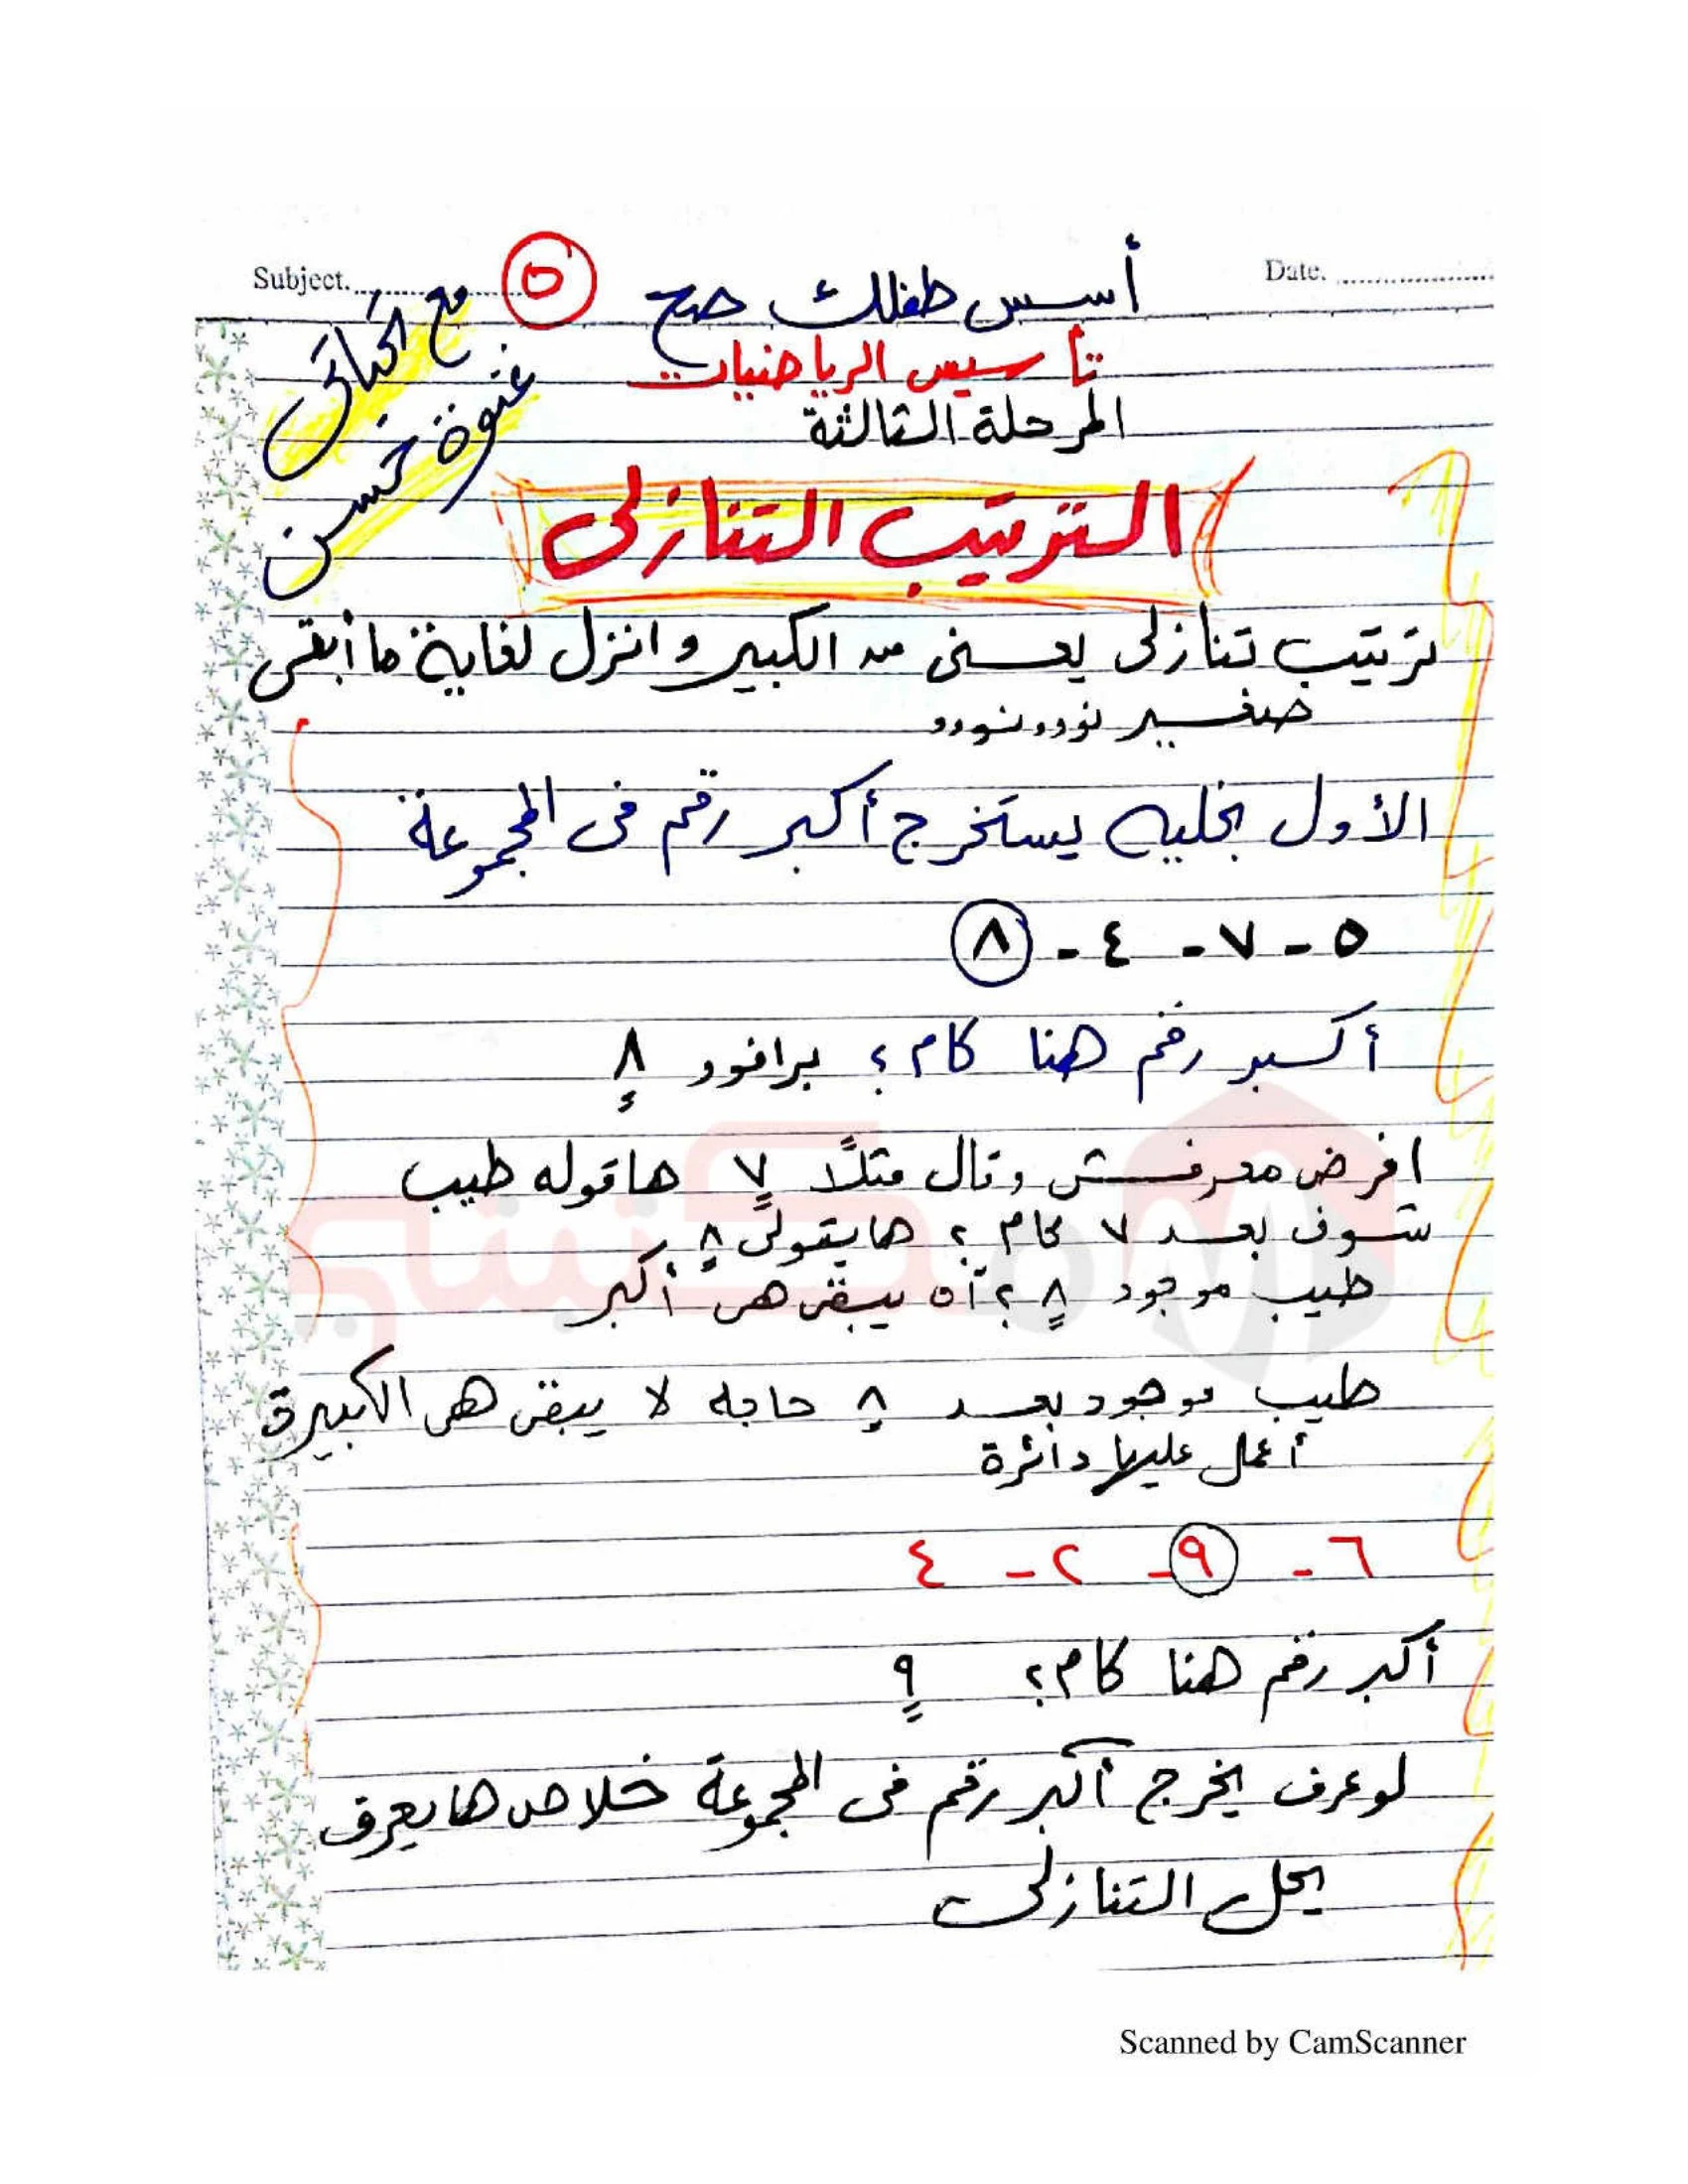 Subject. ٥ أسس طفلك صح Date.
تأسيس الرياضيات
المرحلة الثالثة
مع
حسن
الترتيب التنازلى
ترتيب تنازلى يعنى من الكبير و انزل لغاية ما أبقى
صغير نوووونوووو
الأول بخليه يستخرج أكبر رقم فى المجموعة
٥ - ٧ - ٤ - ٨
أكبر رقم هنا كام؟ برافوو ٨
افرض معرفش وقال مثلاً ٧ هاقوله طيب
شوف بعد ٧ كام؟ هايقولى ٨
طيب موجود ٨؟ آه يبقى هى أكبر
طيب موجود بعد ٨ حاجه لا يبقى هى الكبيرة
أعمل عليها دائرة
٦ - ٩ - ٢ - ٤
أكبر رقم هنا كام؟ ٩
لو عرف يخرج أكبر رقم فى المجموعة خلاص هايعرف
يحل التنازلى
مكتبتي
Scanned by CamScanner